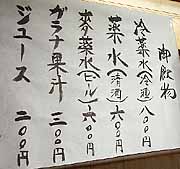 御飲物
冷薬水(冷酒) 八〇〇円
薬水(清酒) 六〇〇円
麦薬水(ビール) 六〇〇円
ガラナ果汁 三〇〇円
ジュース 二〇〇円